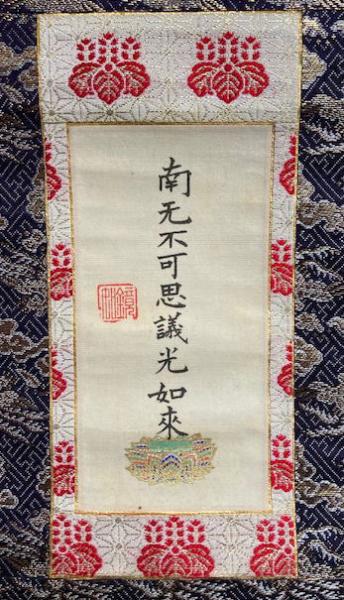 南无不可思議光如來